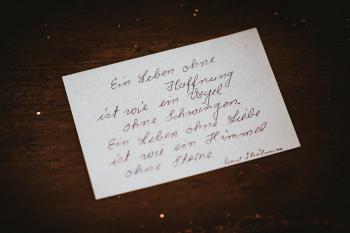 Ein Leben ohne
Hoffnung
ist wie ein Vogel
ohne Schwingen.
Ein Leben ohne Liebe
ist wie ein Himmel
ohne Sterne
Ernst